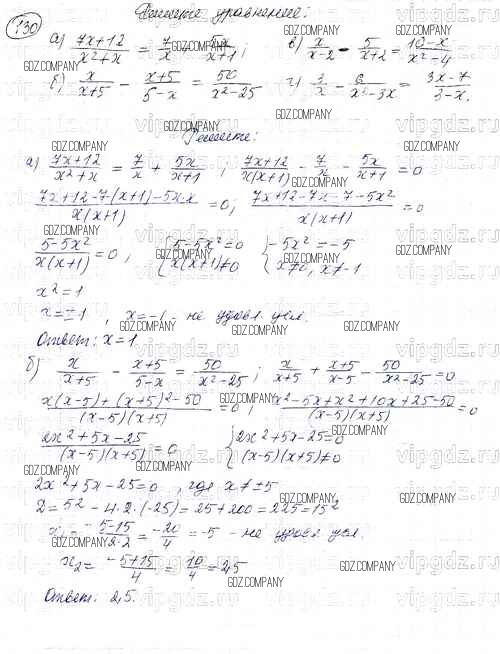 130 Решите уравнения:
а) (7x+12)/(x²+x) = 7/x + 5x/(x+1); в) x/(x-2) - 5/(x+2) = (10-x)/(x²-4)
б) x/(x+5) - (x+5)/(5-x) = 50/(x²-25) г) 3/x - /(x²-3x) = (3x-7)/(3-x).
Решение:
а) (7x+12)/(x²+x) = 7/x + 5x/(x+1); (7x+12)/(x(x+1)) - 7/x - 5x/(x+1) = 0
(7x+12-7(x+1)-5x·x)/(x(x+1)) = 0; (7x+12-7x-7-5x²)/(x(x+1)) = 0
(5-5x²)/(x(x+1)) = 0, { 5-5x²=0 { -5x² = -5
x(x+1)≠0 x≠0, x≠-1
x²=1
x=±1, x=-1 - не удовл. усл.
Ответ: x=1.
б) x/(x+5) - (x+5)/(5-x) = 50/(x²-25); x/(x+5) + (x+5)/(x-5) - 50/(x²-25) = 0
(x(x-5)+(x+5)²-50)/((x-5)(x+5)) = 0; (x²-5x+x²+10x+25-50)/((x-5)(x+5)) = 0
(2x²+5x-25)/((x-5)(x+5)) = 0 { 2x²+5x-25=0
(x-5)(x+5)≠0
2x²+5x-25=0, где x≠±5
D=5²-4·2·(-25)=25+200=225=15²
x₁ = (-5-15)/(2·2) = -20/4 = -5 - не удовл. усл.
x₂ = (-5+15)/4 = 10/4 = 2,5
Ответ: 2,5.
GDZ.COMPANY
vipgdz.ru